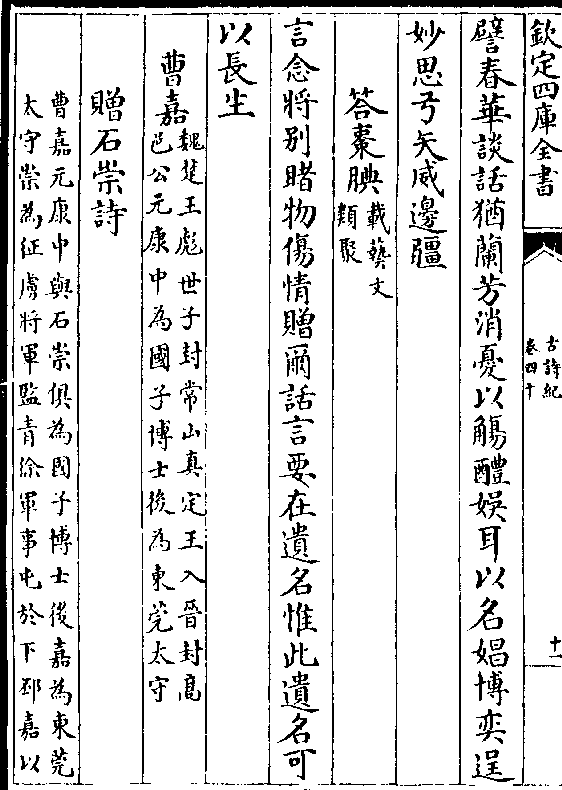 欽定四庫全書
古詩紀
卷四十
十一
譬春華談話猶蘭芳消憂以觴醴娛耳以名娼博奕逞
妙思弓矢威邊疆
答棗腆
載藝文
類聚
言念將別睹物傷情贈爾話言要在遺名惟此遺名可
以長生
曹嘉
魏楚王彪世子封常山真定王入晉封髙
邑公元康中為國子博士後為東莞太守
贈石崇詩
曹嘉元康中與石崇俱為國子博士後嘉為東莞
太守崇為征虜將軍監青徐軍事屯於下邳嘉以